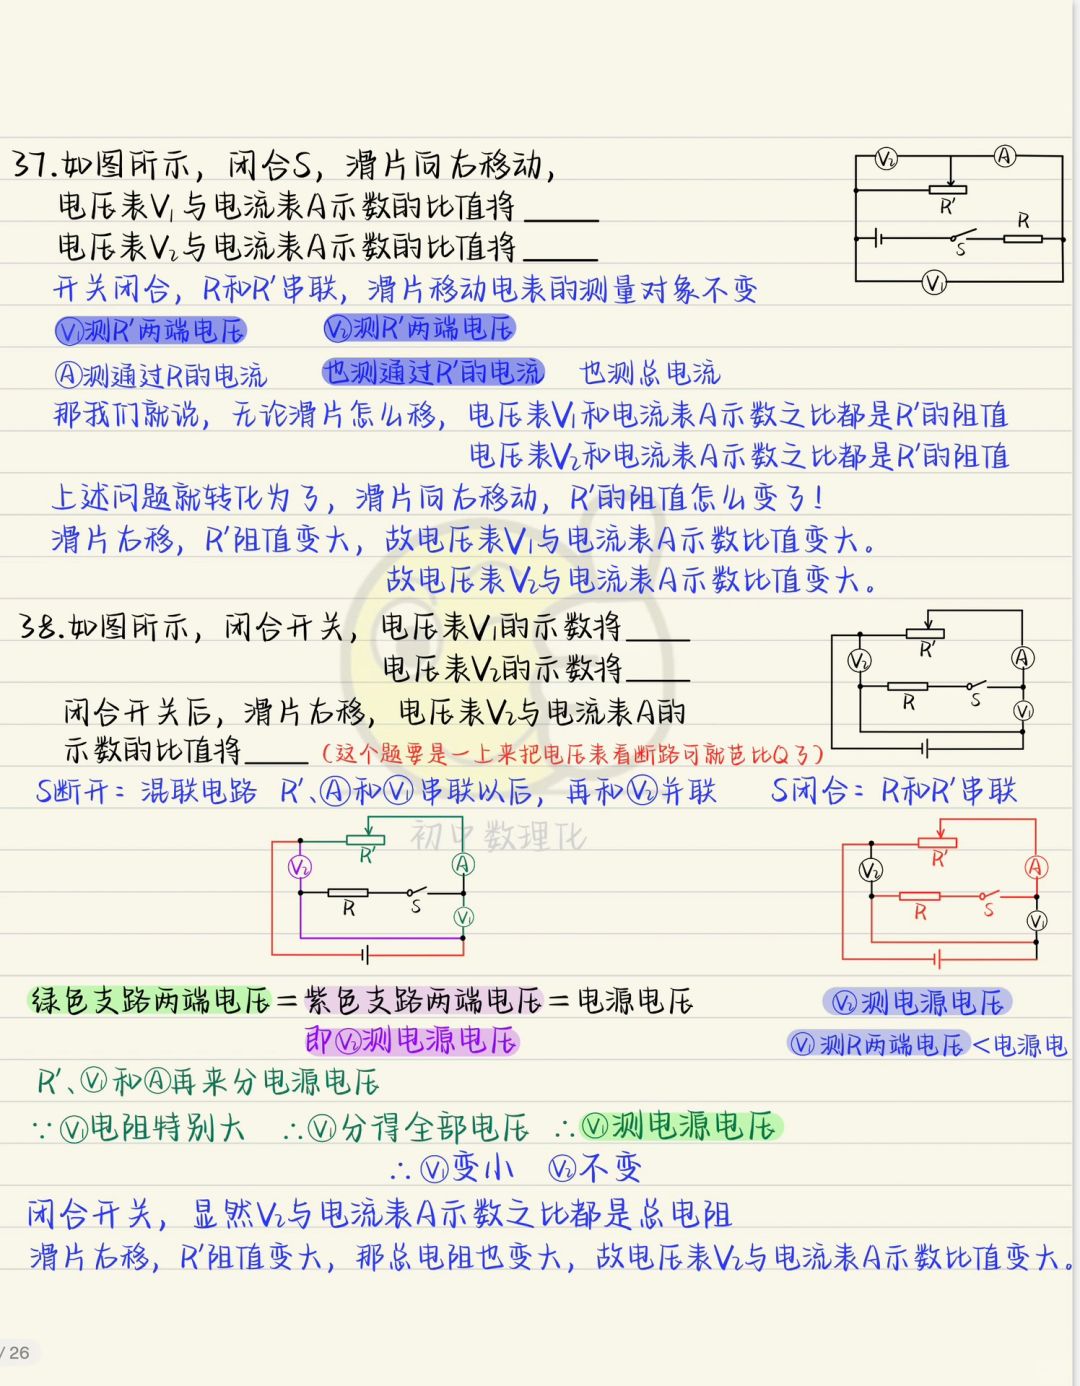 37.如图所示，闭合S，滑片向右移动，
电压表V₁与电流表A示数的比值将____
电压表V₂与电流表A示数的比值将____
V₂ A R' R S V₁
开关闭合，R和R'串联，滑片移动电表的测量对象不变
Ⓥ₁测R'两端电压 Ⓥ₂测R'两端电压
Ⓐ测通过R的电流 也测通过R'的电流 也测总电流
那我们就说，无论滑片怎么移，电压表V₁和电流表A示数之比都是R'的阻值
电压表V₂和电流表A示数之比都是R'的阻值
上述问题就转化为了，滑片向右移动，R'的阻值怎么变了！
滑片右移，R'阻值变大，故电压表V₁与电流表A示数比值变大。
故电压表V₂与电流表A示数比值变大。
38.如图所示，闭合开关，电压表V₁的示数将____
电压表V₂的示数将____
R' V₂ A R S V₁
闭合开关后，滑片右移，电压表V₂与电流表A的
示数的比值将____（这个题要是一上来把电压表看断路可就芭比Q了）
S断开：混联电路 R'、Ⓐ和Ⓥ₁串联以后，再和Ⓥ₂并联 S闭合：R和R'串联
初中数理化
R' V₂ A R S V₁
R' V₂ A R S V₁
绿色支路两端电压=紫色支路两端电压=电源电压 Ⓥ₂测电源电压
即Ⓥ₂测电源电压 Ⓥ₁测R两端电压<电源电
R'、Ⓥ₁和Ⓐ再来分电源电压
∵Ⓥ₁电阻特别大 ∴Ⓥ₁分得全部电压 ∴Ⓥ₁测电源电压
∴Ⓥ₁变小 Ⓥ₂不变
闭合开关，显然V₂与电流表A示数之比都是总电阻
滑片右移，R'阻值变大，那总电阻也变大，故电压表V₂与电流表A示数比值变大。
/ 26